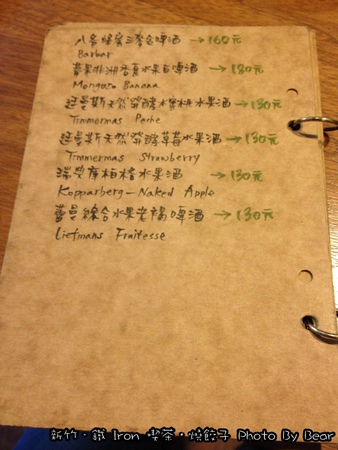 八爸蜂蜜三麥金啤酒 →160元
Barbar
蒙果非洲香蕉水果啤酒 →180元
Mongozo Banana
廷曼斯天然發酵水蜜桃水果酒 →130元
Timmermas Peche
廷曼斯天然發酵草莓水果酒 →130元
Timmermas Strawberry
瑞典 蘋果 水果酒 →130元
Kopparberg-Naked Apple
蕾曼綜合水果 啤酒 →130元
Liefmans Fruitesse
新竹·鐵 Iron 喫茶·燒餃子 Photo By Bear